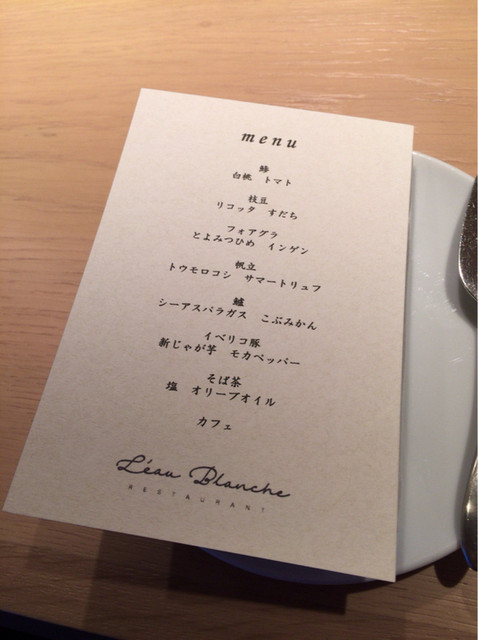 menu
鯵
白桃 トマト
枝豆
リコッタ すだち
フォアグラ
とよみつひめ インゲン
帆立
トウモロコシ サマートリュフ
鱸
シーアスパラガス こぶみかん
イベリコ豚
新じゃが芋 モカペッパー
そば茶
塩 オリーブオイル
カフェ
L'éau Blanche
RESTAURANT